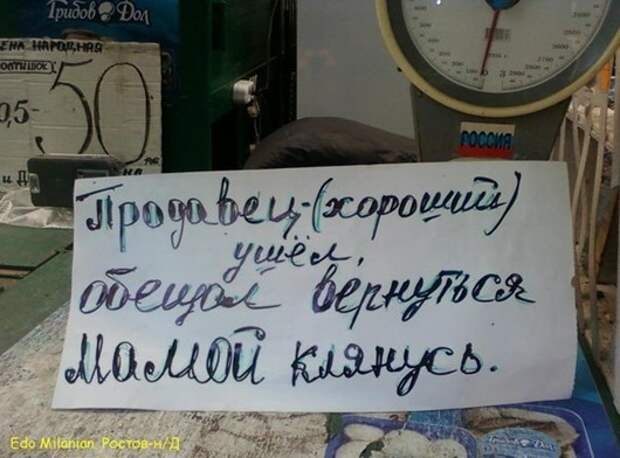 Грибов Дол
ЦЕНА НАРОДНАЯ
0,5- 50
РОССИЯ
Продавец-(хороший)
ушёл,
обещал вернуться
мамой клянусь.
ГРИБОВ ДОЛ
Edo Milanian Ростов-н/Д